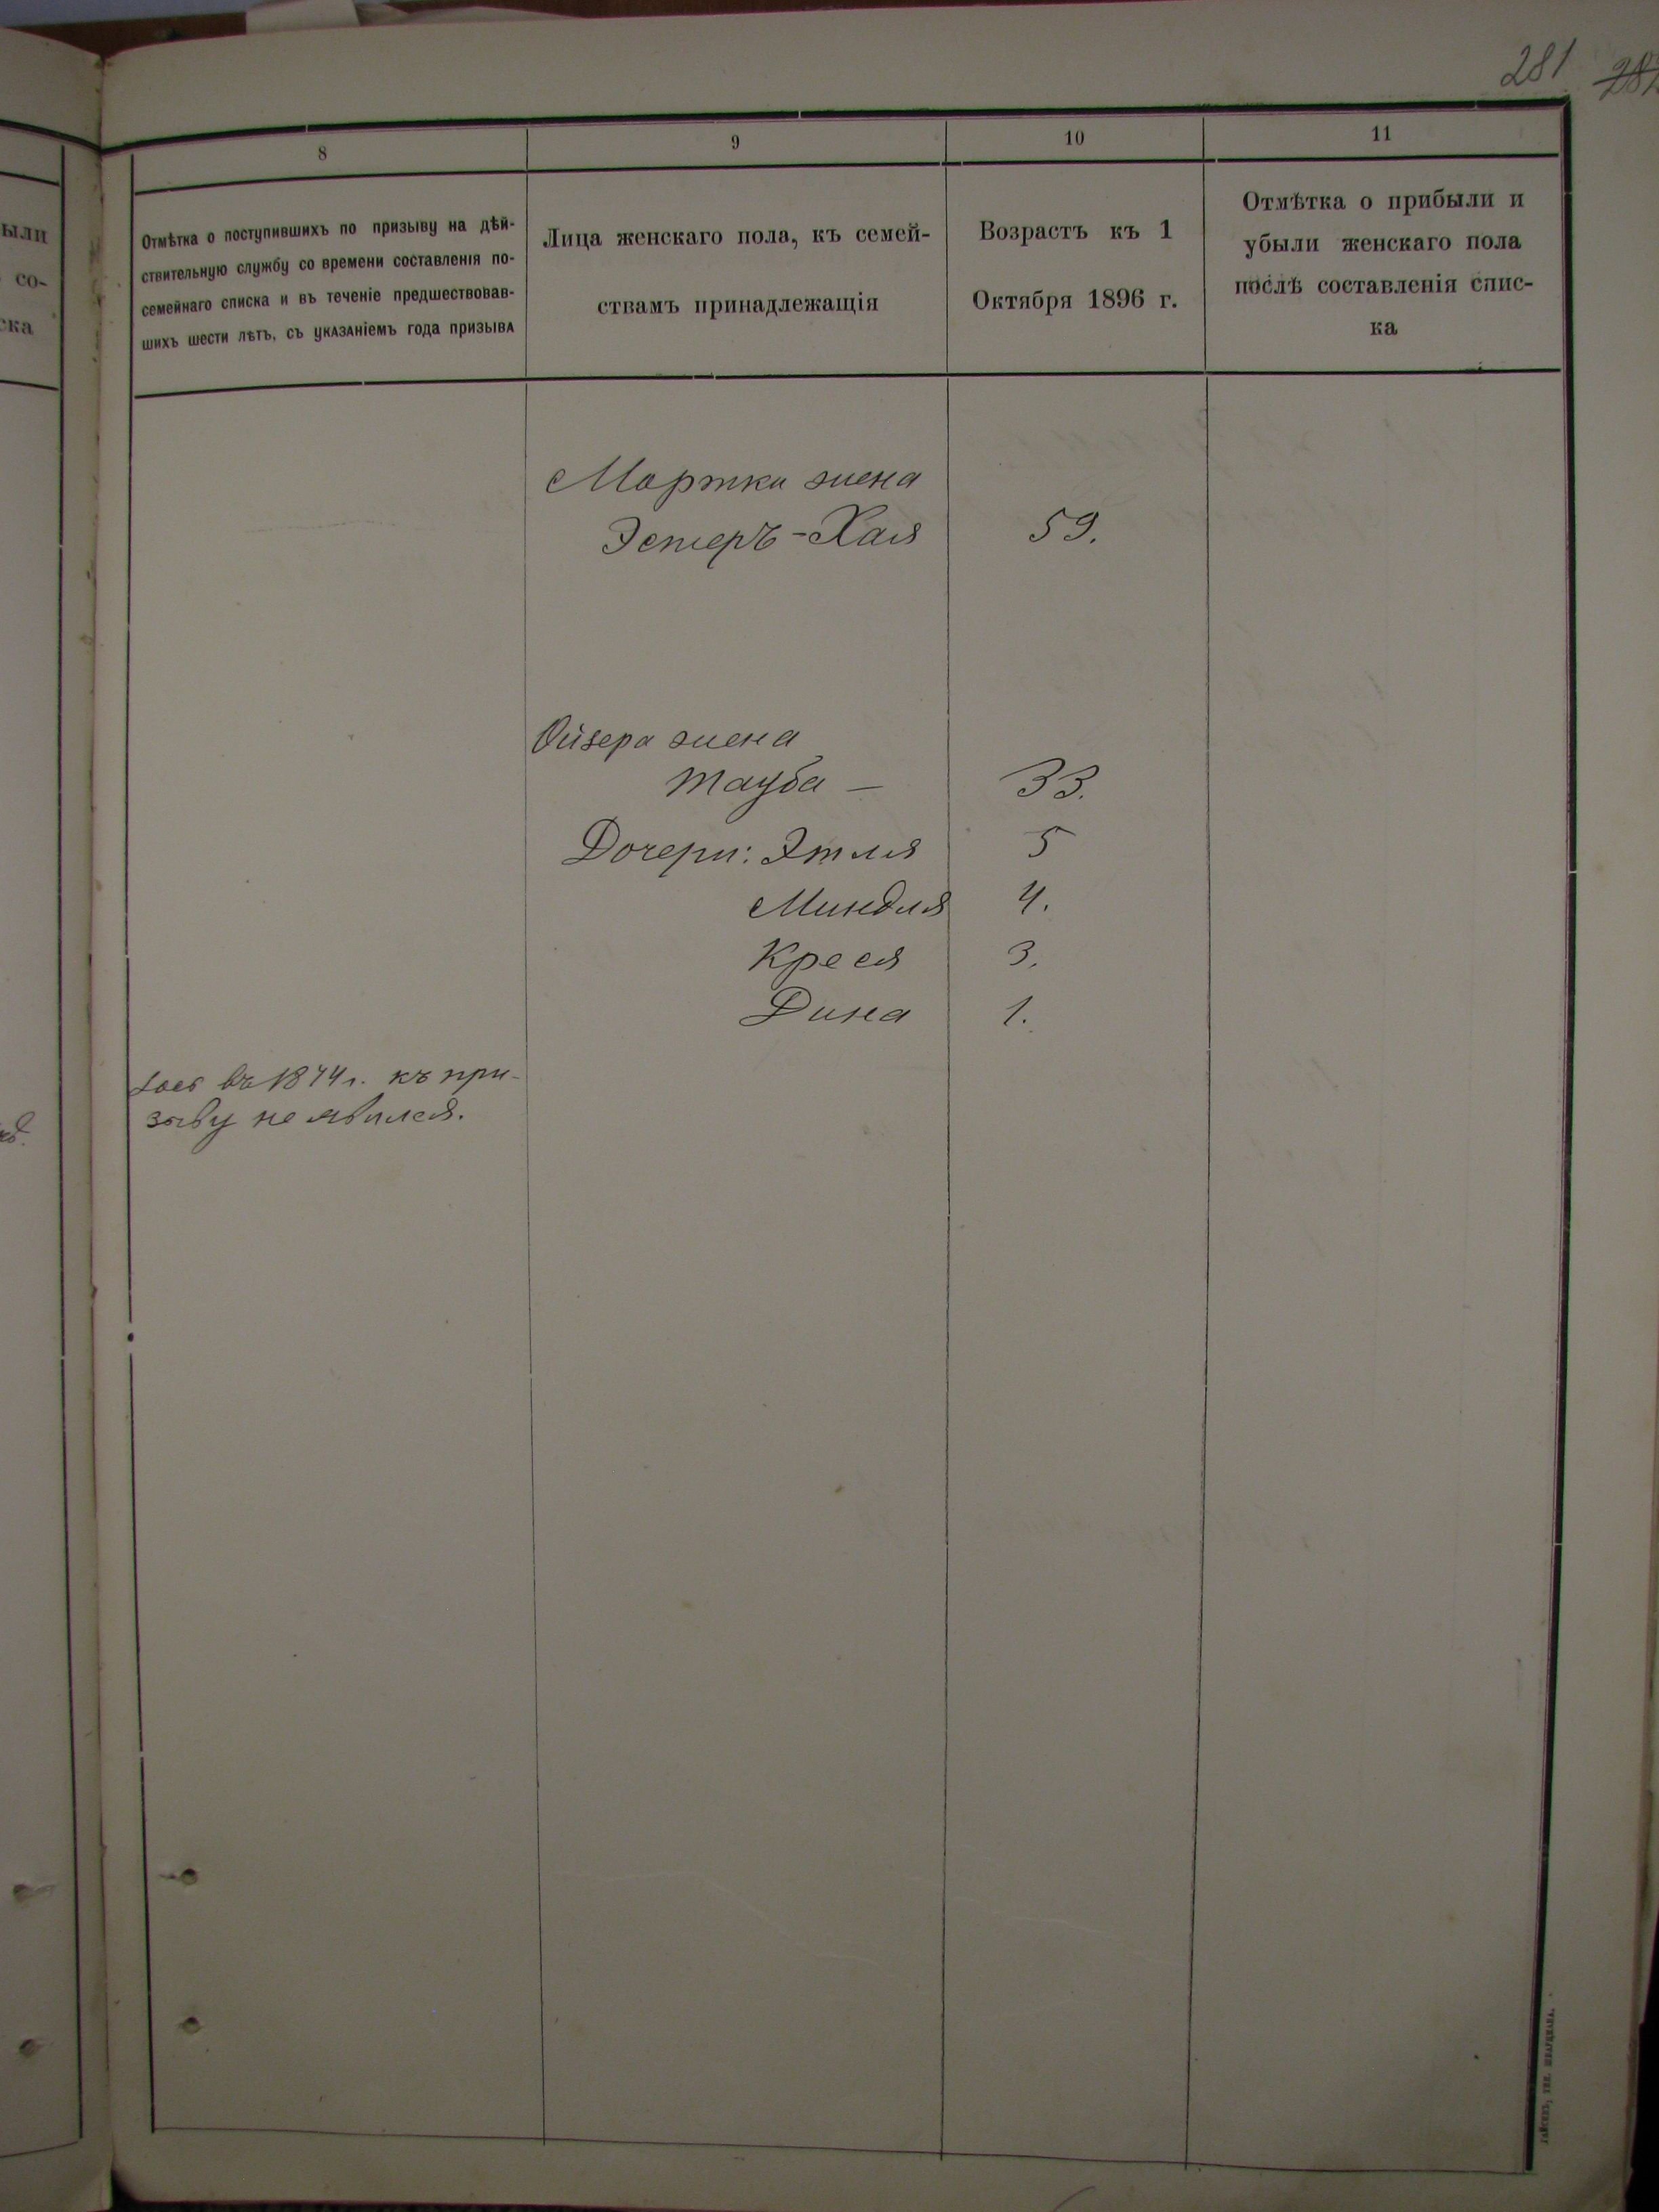 281
282
8
9
10
11
Отмѣтка о поступившихъ по призыву на дѣй-
ствительную службу со времени составленія по-
семейнаго списка и въ теченіе предшествовав-
шихъ шести лѣтъ, съ указаніемъ года призыва
Лица женскаго пола, къ семей-
ствамъ принадлежащія
Возрастъ къ 1
Октября 1896 г.
Отмѣтка о прибыли и
убыли женскаго пола
послѣ составленія спис-
ка
ыли
со-
ска
жена
Эстеръ-Хая 59.
Ойзера жена
Тауба — 33.
Дочери: Этля 5
Миндля 4.
Крейся 3.
Дина 1.
въ 1874 г. къ при-
зыву не явился.